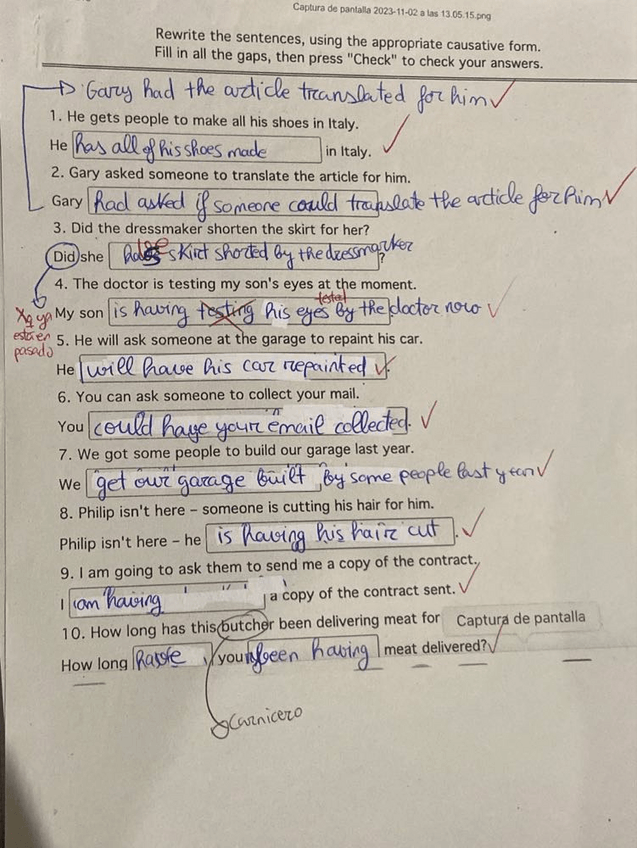 Captura de pantalla 2023-11-02 a las 13.05.15.png
Rewrite the sentences, using the appropriate causative form.
Fill in all the gaps, then press "Check" to check your answers.
Gary had the article translated for him
1. He gets people to make all his shoes in Italy.
He has all of his shoes made in Italy.
2. Gary asked someone to translate the article for him.
Gary had asked if someone could translate the article for him
3. Did the dressmaker shorten the skirt for her?
Did she skirt shorted by the dressmarker ?
4. The doctor is testing my son's eyes at the moment.
tested
My son is having testing his eyes by the doctor now
Xq ya
está en
pasado
5. He will ask someone at the garage to repaint his car.
He will have his car repainted.
6. You can ask someone to collect your mail.
You could have your email collected.
7. We got some people to build our garage last year.
We get our garage built by some people last year
8. Philip isn't here – someone is cutting his hair for him.
Philip isn't here – he is having his hair cut .
9. I am going to ask them to send me a copy of the contract.
I am having a copy of the contract sent.
10. How long has this butcher been delivering meat for Captura de pantalla
How long have you been having meat delivered?
Carnicero